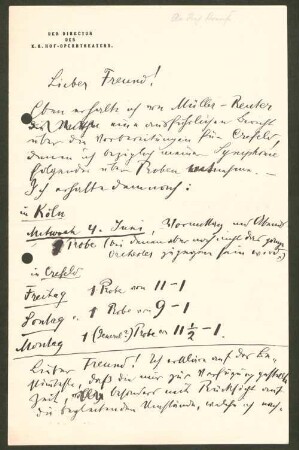 DER DIRECTOR
DES
K. K. HOF-OPERNTHEATERS.
Lieber Freund!
Eben erhalte ich von Müller-Reuter
eine ausführlichen Bericht
über die Vorbereitungen für Crefeld,
denen ich bezüglich meiner Symphonie
folgendes über Proben entnehme. –
Ich erhalte demnach:
in Köln
Mittwoch 4. Juni, Vormittag und Abend
Probe (bei denen aber noch nicht das ganze
Orchester zugegen sein wird.)
in Crefeld
Freitag 1 Probe von 11–1
Sontag 1 Probe von 9–1
Montag 1 (General?) Probe von 11½–1.
Lieber Freund! Ich erkläre auf das Be-
stimmteste, daß die mir zur Verfügung gestellte
Zeit, besonders mit Rücksicht auf
die begleitenden Umstände, welche ich noch